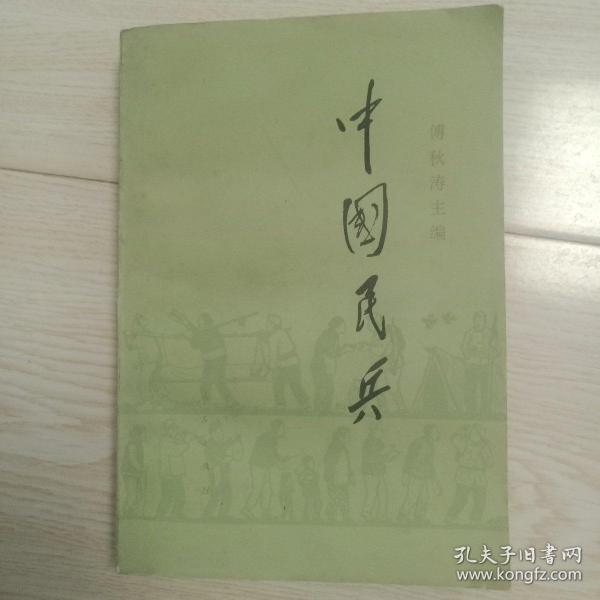 傅秋涛主编
中國民兵
孔夫子旧書网
www.kongfz.com